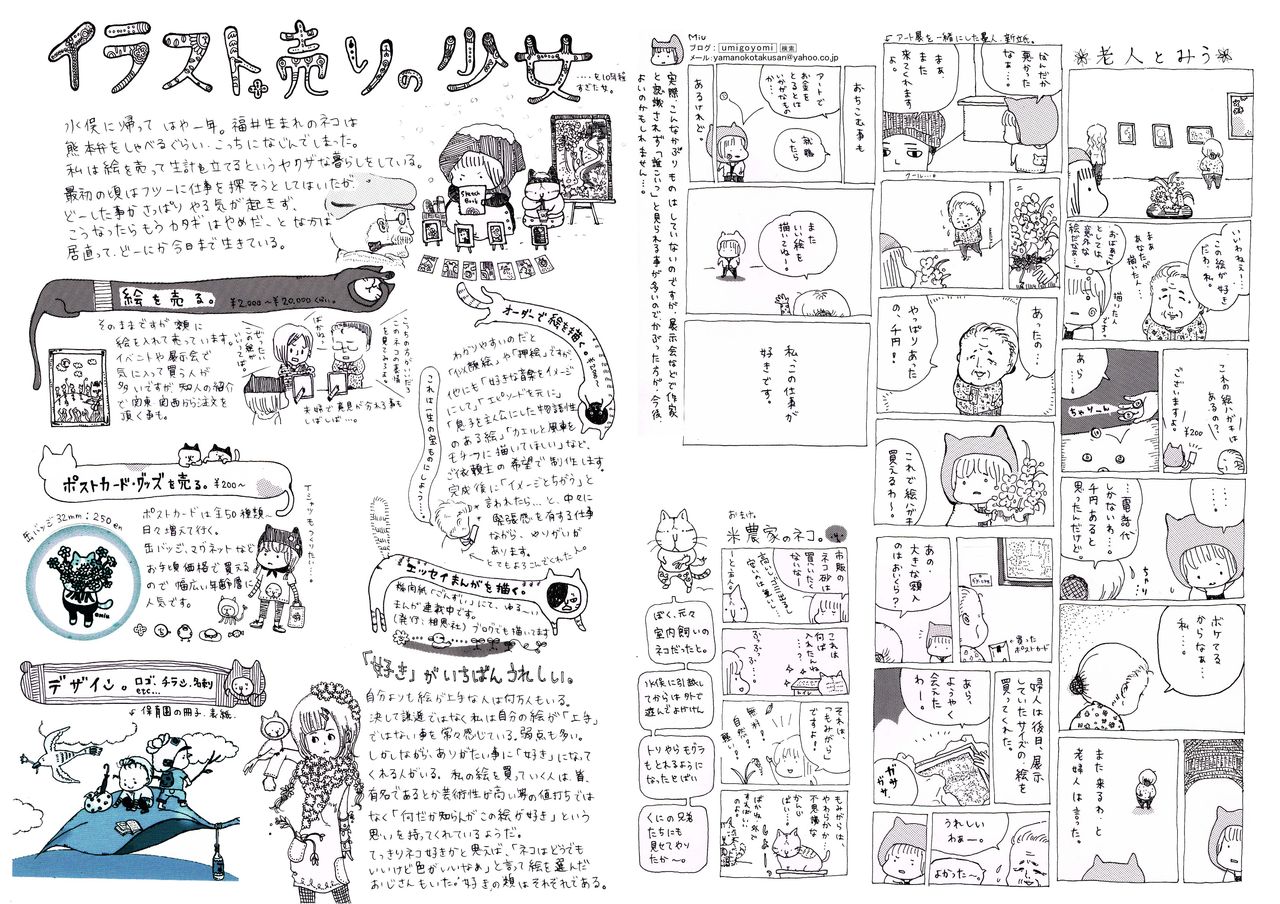 イラスト売りの少女
....を10年程
すぎた女。
水俣に帰って はや一年。福井生まれのネコは
熊本弁をしゃべるぐらい、こっちになじんでしまった。
私は絵を売って生計を立てるというヤクザな暮らしをしている。
最初の頃はフツーに仕事を探そうとしてはいたが、
どーした事かさっぱりやる気が起きず、
こうなったらもうカタギはやめだ、と なかば
居直って、どーにか今日まで生きている。
Sketch
Book
絵を売る。 ¥2,000〜¥20,000くらい。
そのままですが 額に
絵を入れて売っています。
イベントや展示会で
気に入って買う人が
多いですが 知人の紹介
で関東 関西から注文を
頂く事も。
夫婦で意見が分れる事も
しばしば…。
オーダーで絵を描く。
わかりやすいのだと
「似顔絵」や「押絵」ですが、
他にも「好きな音楽をイメージ
にして」「エピソードを元に」
「息子を主人公にした物語性
のある絵」「カエルと風車を
モチーフに描いてほしい」など、
ご依頼主の希望で制作します。
完成後に「イメージとちがう」と
言われたら…と、中々に
緊張感を有する仕事
ながら、やりがいが
あります。
これは一生の宝ものにしよう…。
とてもよろこんでくれた人。
ポストカード・グッズを売る。¥200〜
缶バッジ 32mm:250en
ポストカードは全50種類〜
日々増えて行く。
缶バッジ、マグネットなど
お手頃価格で買える
ので 幅広い年齢層に
人気です。
Tシャツもつくりたい…。
エッセイまんがを描く。
機関紙「ごんずい」にて、ゆるーい
まんが連載中です。
(発行:相思社)ブログでも描いてます
デザイン。ロゴ、チラシ、名刺
etc...
保育園の冊子、表紙。
「好き」がいちばんうれしい。
自分よりも絵が上手な人は何万人もいる。
決して謙遜ではなく私は自分の絵が「上手」
ではない事を常々感じている。弱点も多い。
しかしながら、ありがたい事に「好き」になって
くれる人がいる。私の絵を買っていく人は、皆、
有名であるとか芸術性が高い等の値打ちでは
なく「何だか知らんがこの絵が好き」という
思いを持ってくれているようだ。
てっきりネコ好きかと思えば、「ネコはどうでも
いいけど色がいいなぁ」と言って絵を選んだ
おじさんもいた。好きの類はそれぞれである。
Miu
ブログ: umigoyomi 検索
メール:yamanokotakusan@yahoo.co.jp
実際、こんなかぶりものはしていないのですが、展示会などで作家
と認識されず「誰こいつ」と見られる事が多いのでかぶった方が今後、
よいのかもしれません…。
老人とみう
いいわねぇー。
この絵が好き
だわ、私。
おばあさん
としては
意外な
絵だなぁ…
まぁ
あなたが
描いた人?
描いた人
です。
この絵ハガキは
あるの?
ございますよ。
¥200
あら…
ちゃりーん
…。
…電話代
しかないわ…。
千円あると
思ったんだけど。
ちゃり
ボケてる
からなぁ…
私…
また来るわ と
老婦人は言った。
アート展を一緒にした友人、新聞紙。
なんだか
悪かった
なぁ…
まぁ
また
来てくれます
よ。
クール…。
あったの…
やっぱりあった
の、千円!
これで絵ハガキ
買えるわ〜。
あの、
大きな額入
のはおいくら?
買った
ポストカード
婦人は後日、展示
していたサイズの絵を
買ってくれた。
あら、
ようやく
会えた
わー。
ガサ
ガサ
うれしい
わぁー。
よかった〜。
おちこむ事も
あるけれど。
アートで
お金を
とるとは
いかがなもの
か…
就職
したら
また
いい絵を
描いてね〜。
私、この仕事が
好きです。
おまけ
米農家のネコ。
市販の
ネコ砂は
買いたく
ないなー
これは
何ば
入れたんね
トイレ
ふふふ…
それは、
「もみがら」
ですよ!
無料!
自然!
軽い!
もみがらは、
やわらか
不思議な
かんじ
ばい…。
ぼく、元々
室内飼いの
ネコだったと。
水俣に引越し
てからは外で
遊んでよかけん
トリやらモグラ
もとれるように
なったとばい
くにの兄弟
たちにも
見せてやり
たか〜。